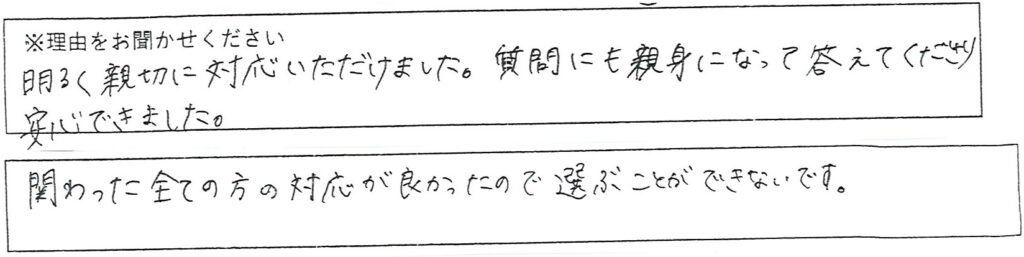 ※理由をお聞かせください
明るく親切に対応いただけました。質問にも親身になって答えてくださり
安心できました。
関わった全ての方の対応が良かったので選ぶことができないです。